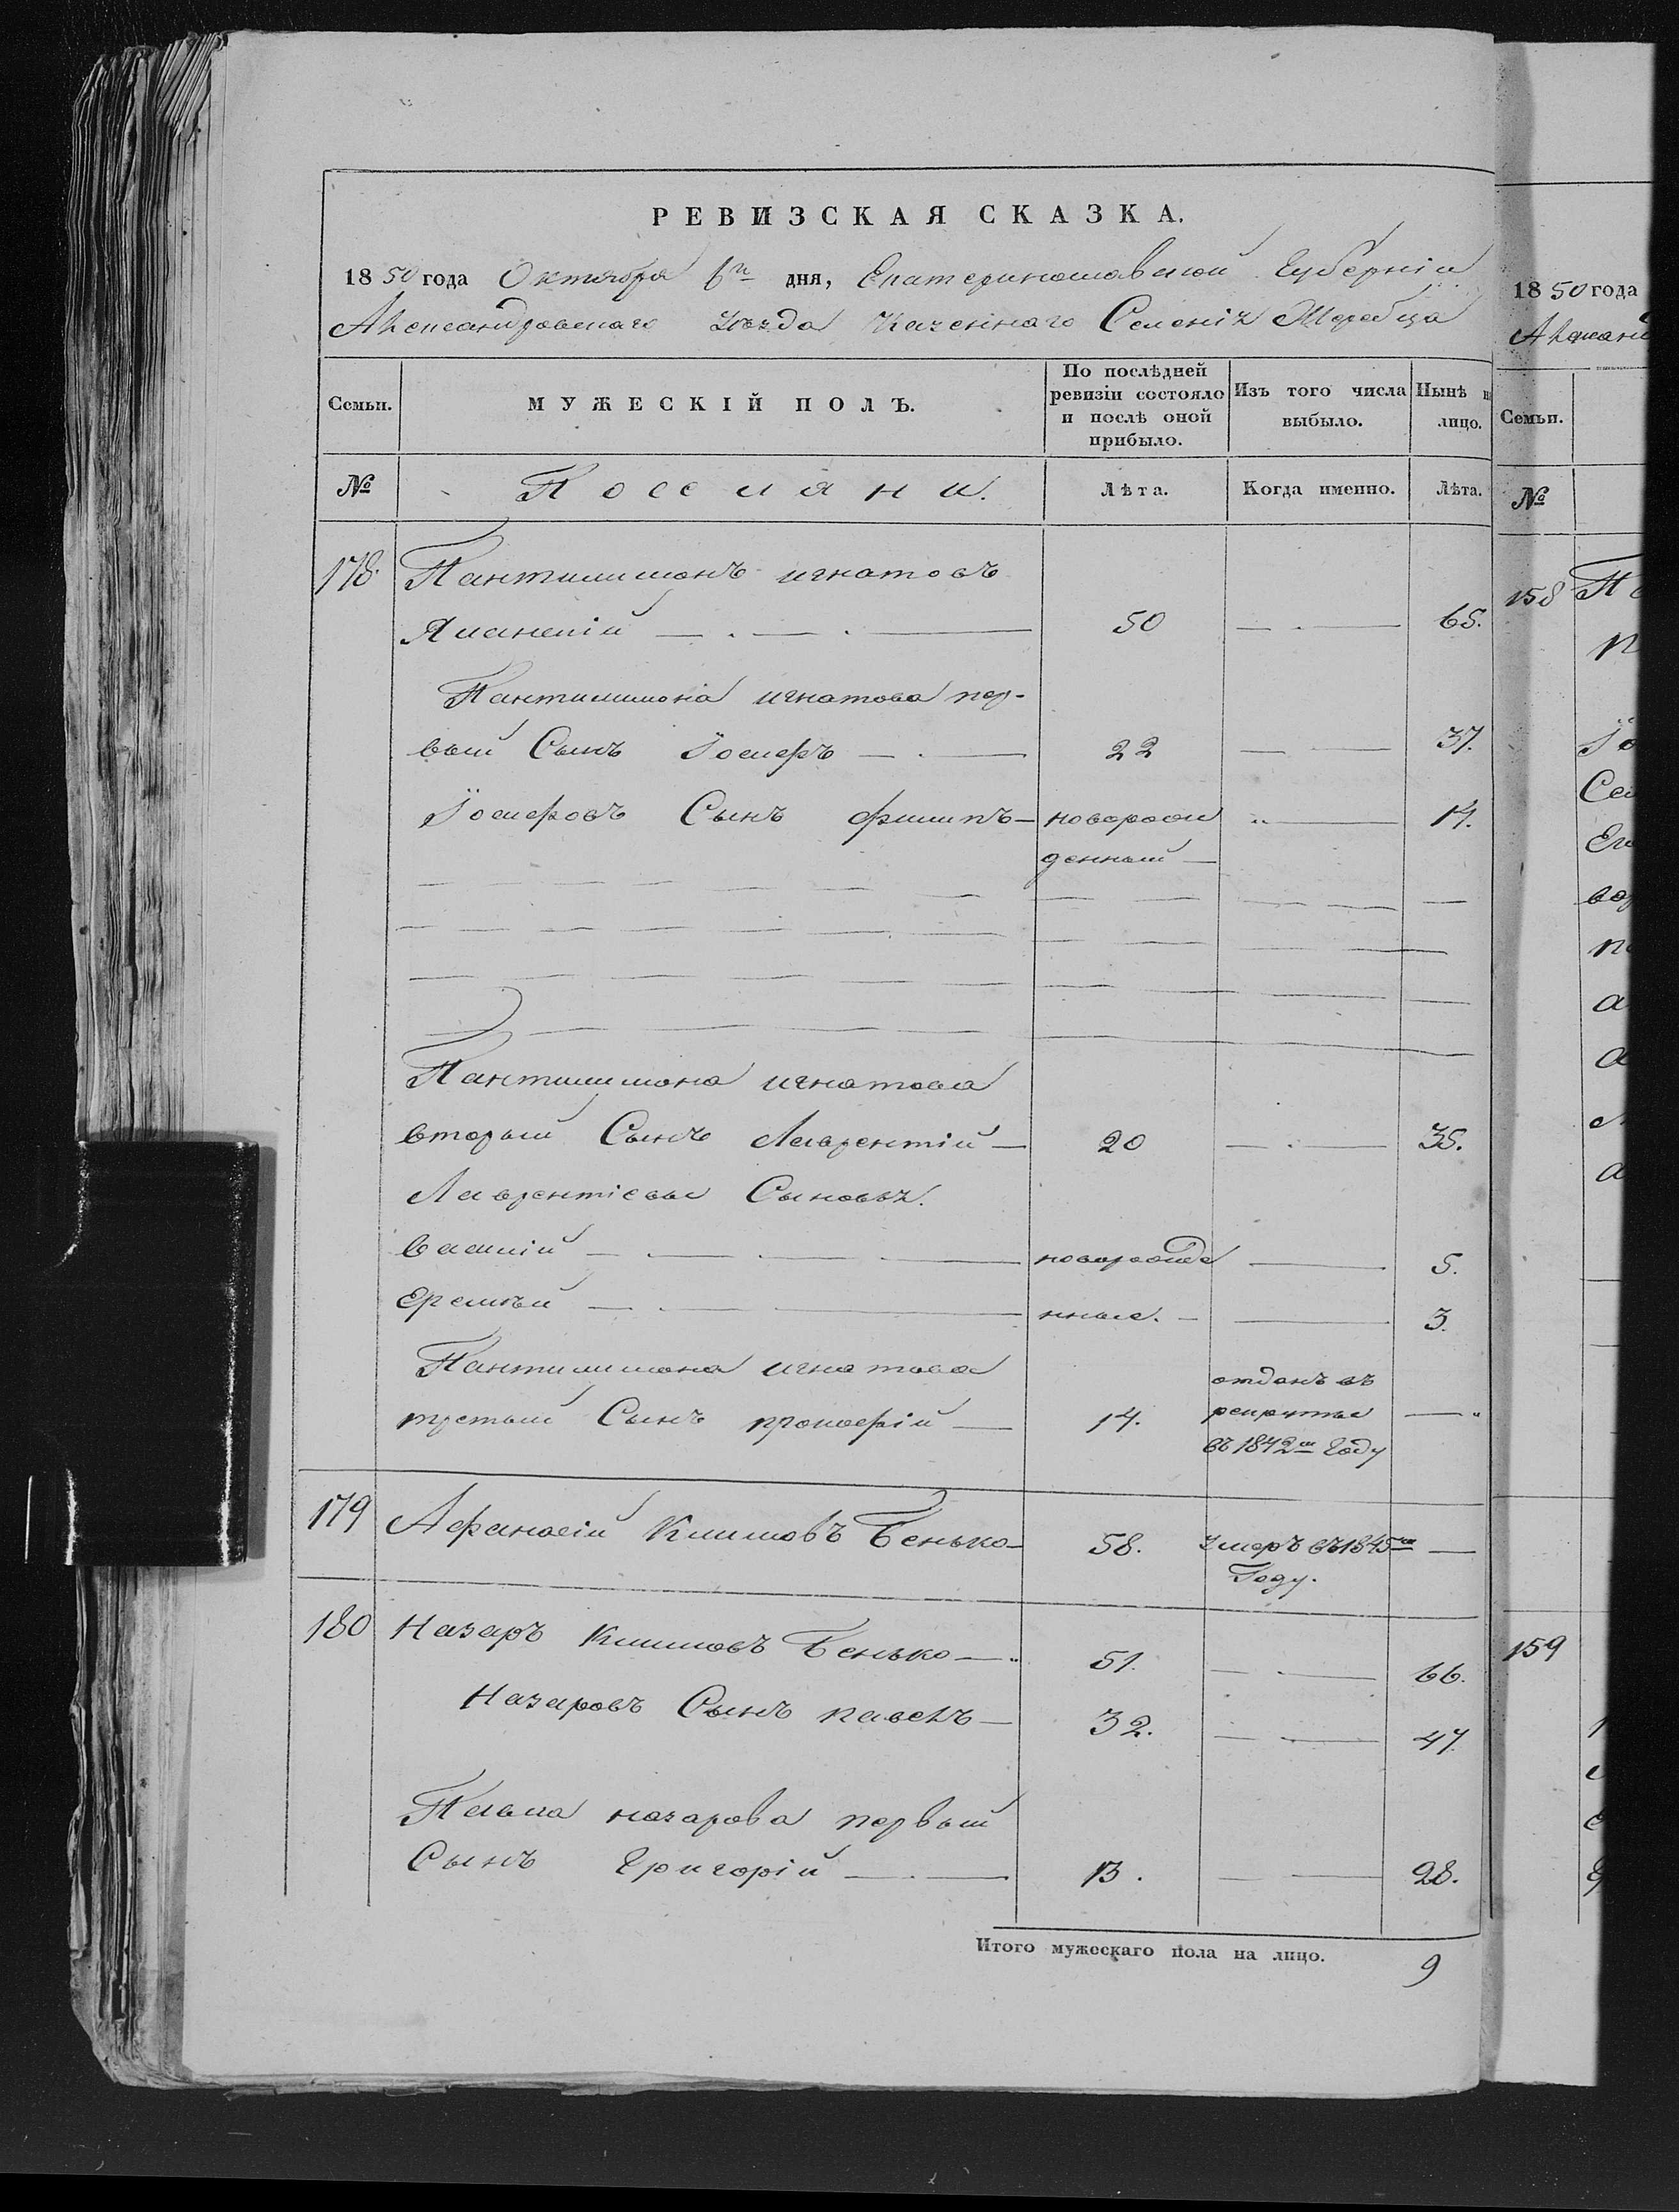 РЕВИЗСКАЯ СКАЗКА.
1850 года Октября 6го дня, Екатеринославской Губерніи
Александровскаго уѣзда Казеннаго Селенія Жеребца
Семьи. МУЖЕСКІЙ ПОЛЪ. По послѣдней ревизіи состояло и послѣ оной прибыло. Изъ того числа выбыло. Нынѣ н лицо.
№ Поселяни. Лѣта. Когда именно. Лѣта.
178. Пантилимонъ игнатовъ
50 65.
Пантилимона игнатова пер-
вый Сынъ Іосифъ 22 37.
Іосифовъ Сынъ филипъ новорож 14.
денный
Пантилимона игнатова
вторый Сынъ Лаврентій 20 35.
Лаврентіевы Сыновья.
василій новорожде 5.
Еремѣй нные. 3.
Пантилимона игнатова отданъ въ
третый Сынъ прокофій 14. рекруты
въ 1842м Году
179 Афанасій Климовъ Бенько 58. Умеръ въ 1845м
Году.
180 Назаръ Климовъ Бенько 51. 66.
Назаровъ Сынъ павелъ 32. 47.
Павла назарова первый
Сынъ Григорій 13. 28.
Итого мужескаго пола на лицо. 9
1850 года
Семьи.
№
158
159